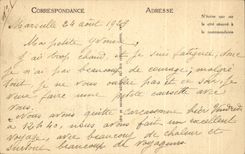 CORRESPONDANCE
ADRESSE
N'écrire que sur
le côté réservé à
la correspondance
Marseille 24 août 1929
Ma petite
j'ai trop chaud, et je suis fatiguée, donc
je n'ai pas beaucoup de courage; malgré
tout je ne vous oublie pas et ce soir, je
veux faire une petite causette avec
vous.
Nous avons quitté Carcassonne hier Vendredi
à 15h40, nous avons fait un excellent
voyage, avec beaucoup de chaleur et
surtout beaucoup de voyageurs